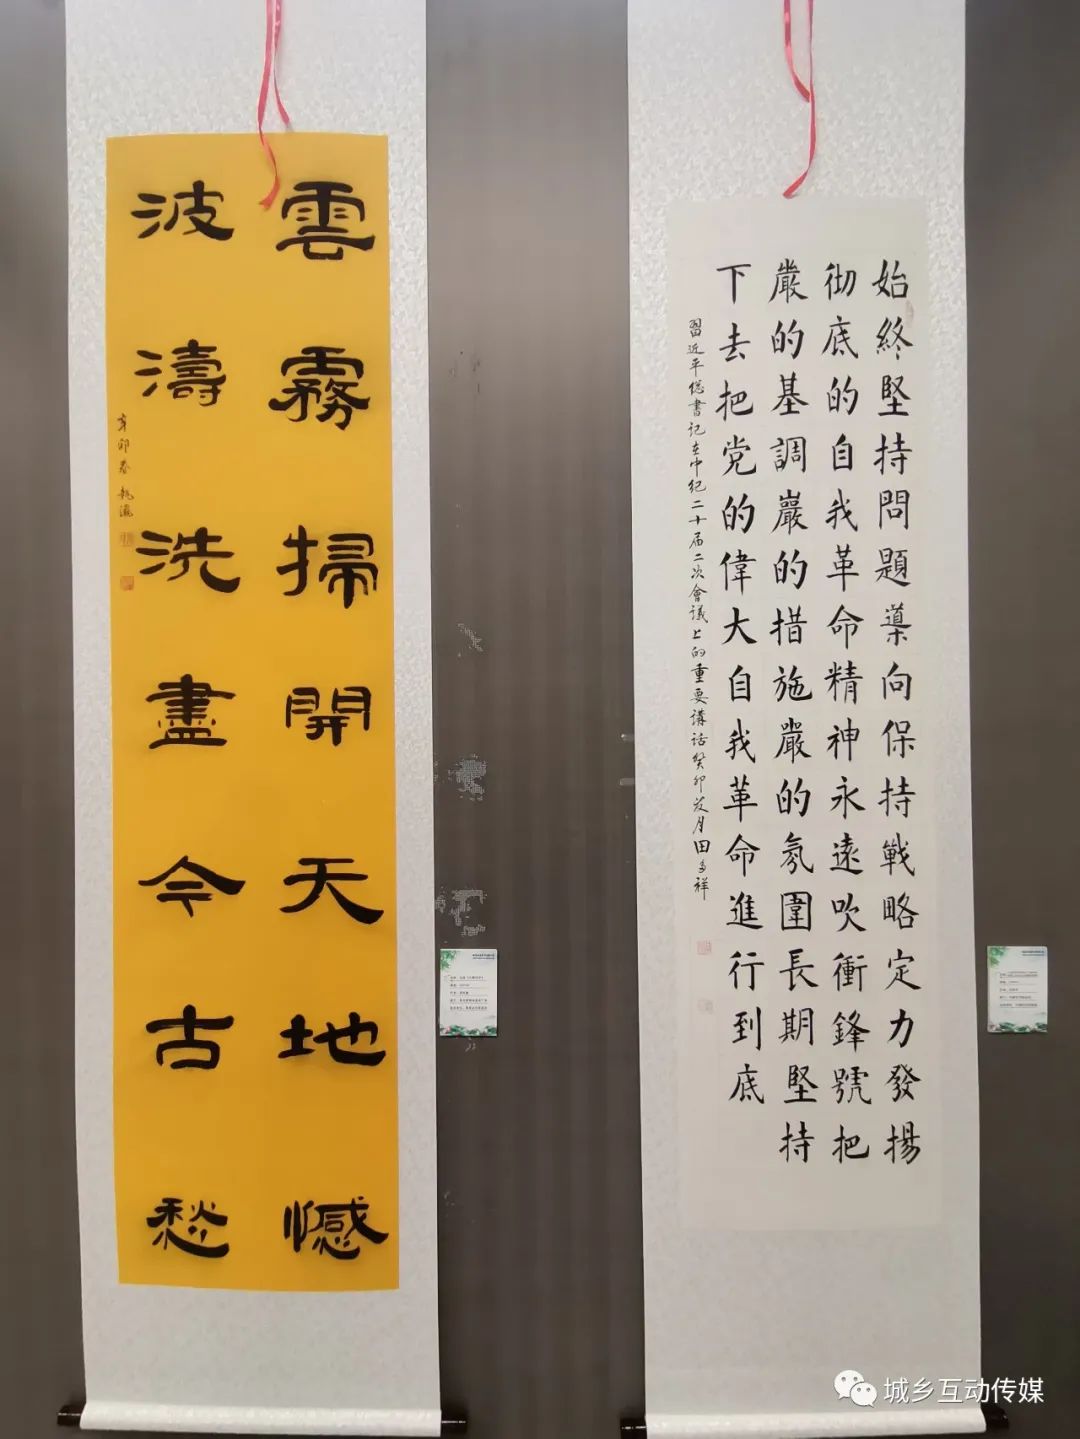 雲霧掃開天地憾
波濤洗盡今古愁
辛卯春
始終堅持問題導向保持戰略定力發揚
彻底的自我革命精神永遠吹衝鋒號把
嚴的基調嚴的措施嚴的氛圍長期堅持
下去把党的偉大自我革命進行到底
習近平總書記在中紀二十届二次會議上的重要講話癸卯年月田多祥
城乡互动传媒